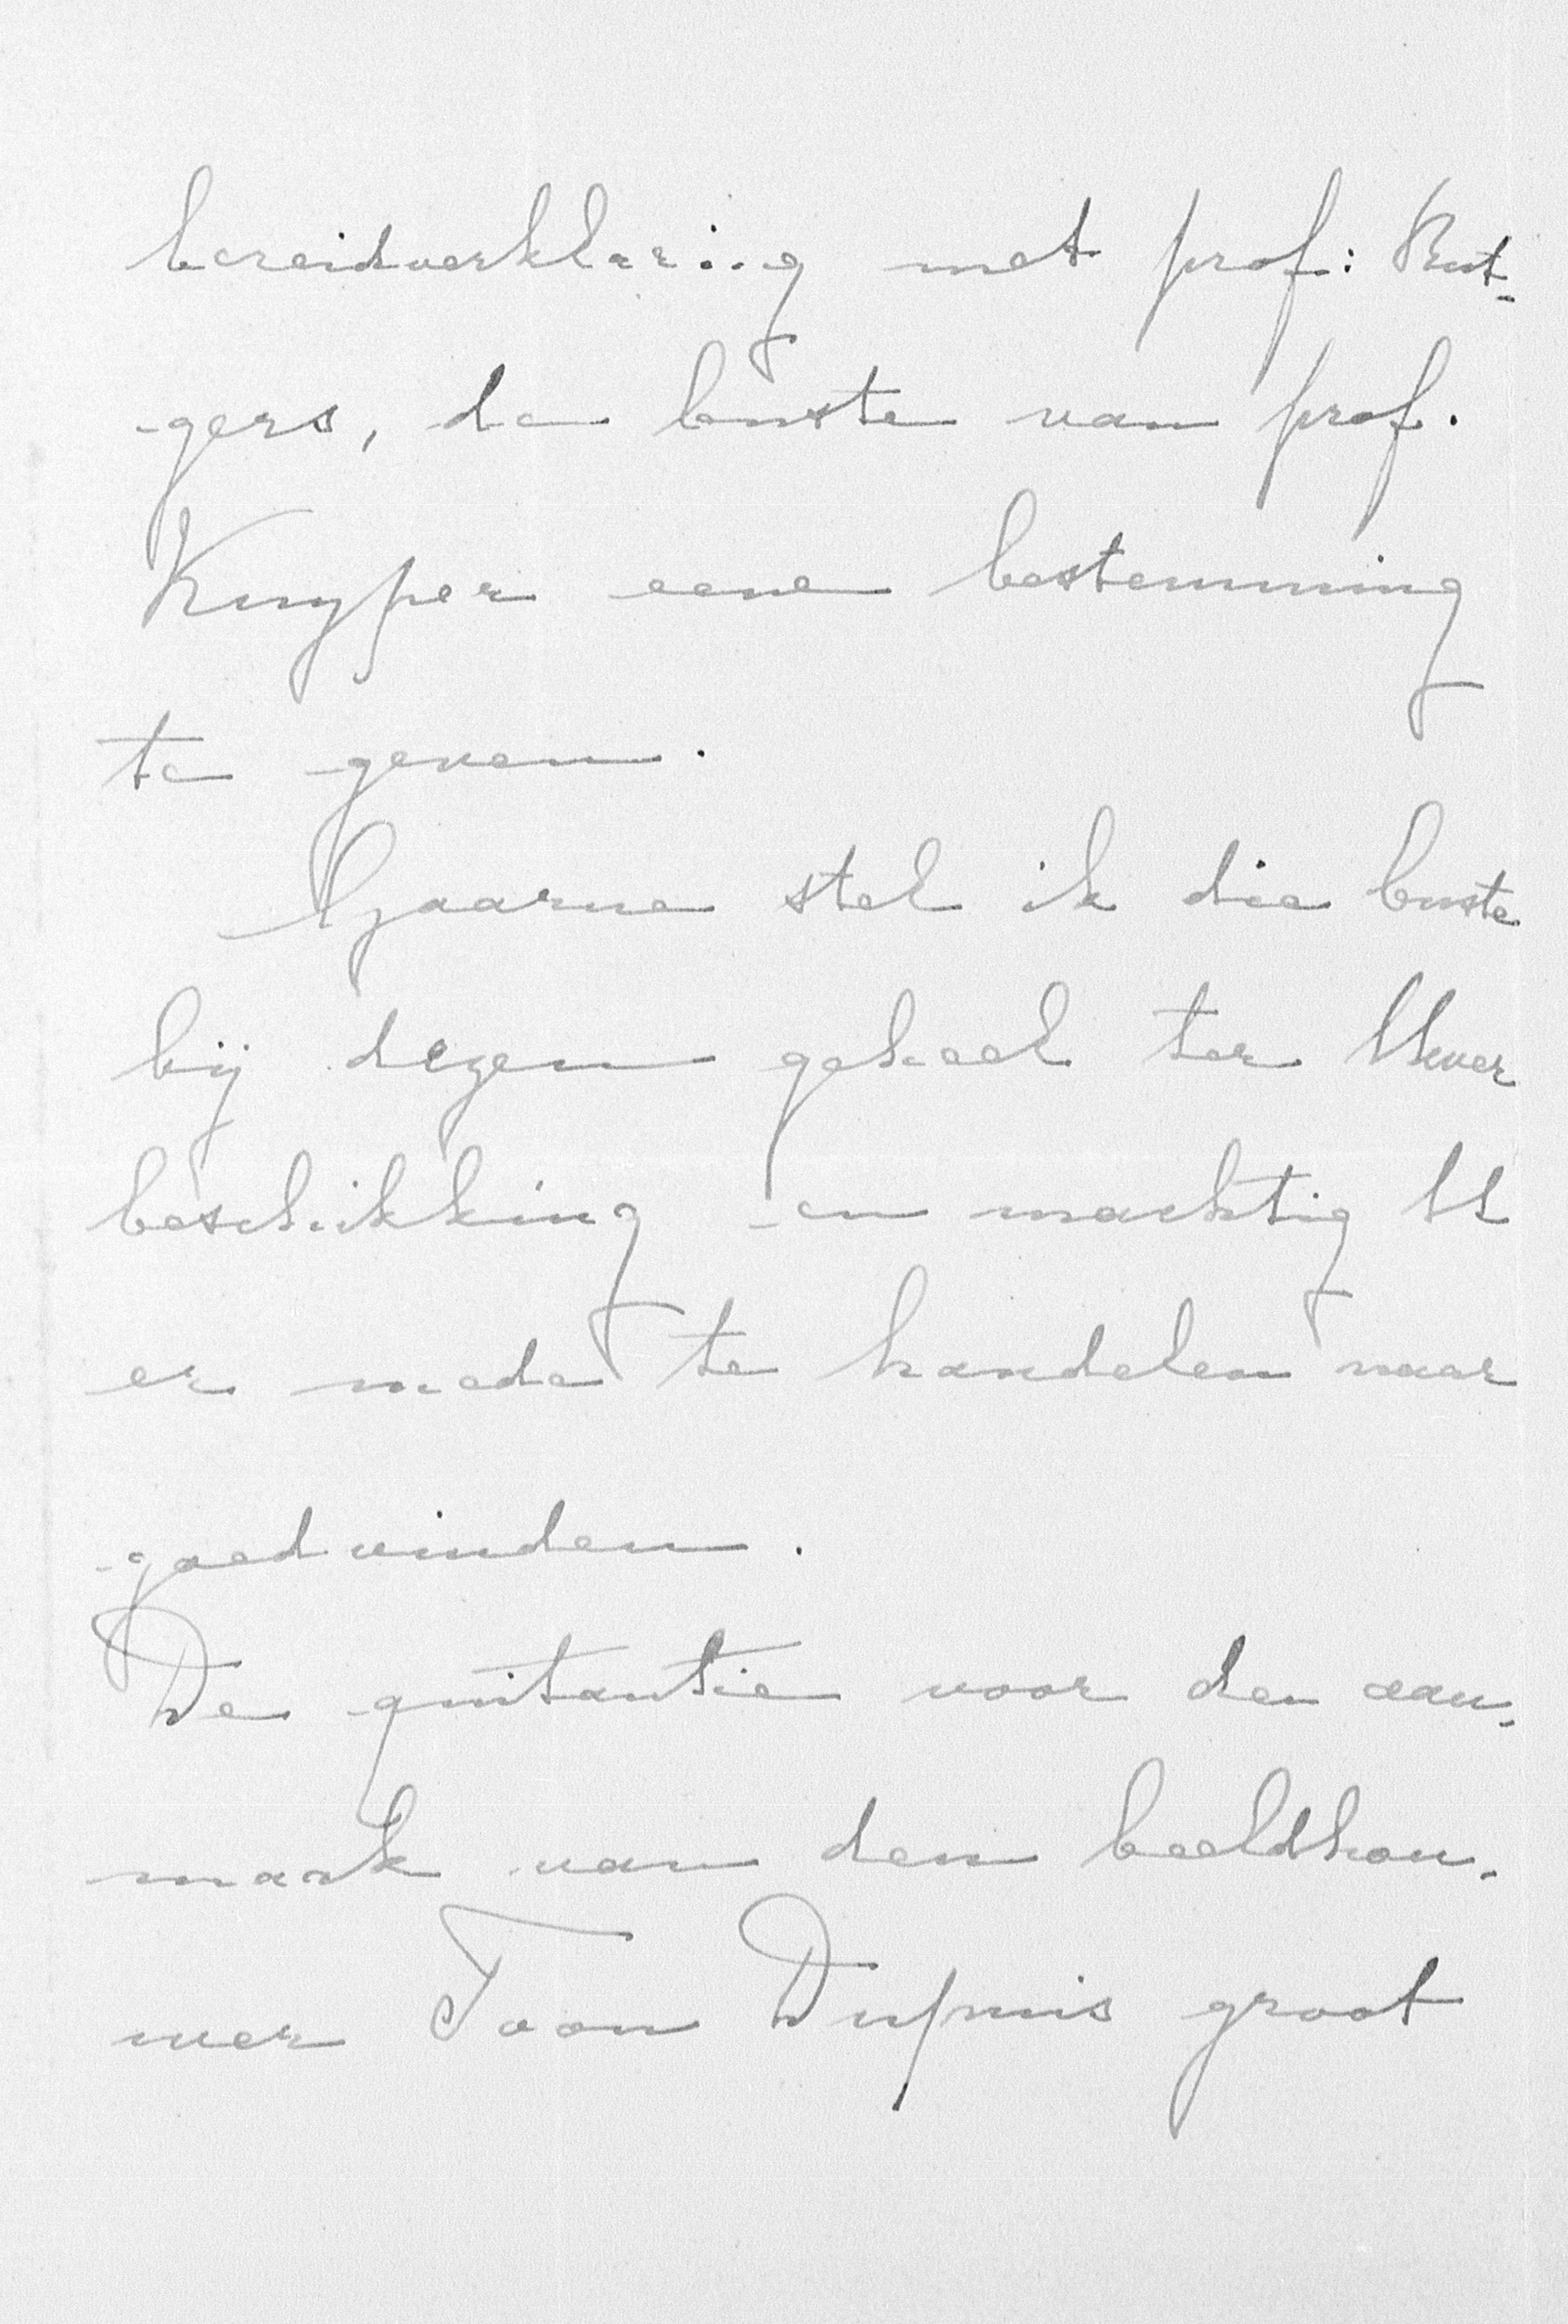 bereidverklaring met prof: Rut-
gers, de buste van prof.
Kuyper eene bestemming
te geven.
Gaarne stel ik die buste
bij dezen geheel ter Uwer
beschikking en machtig U
er mede te handelen naar
goedvinden.
De quitantie voor den aan-
maak van den beeldhou-
wer Toon Dupuis groot